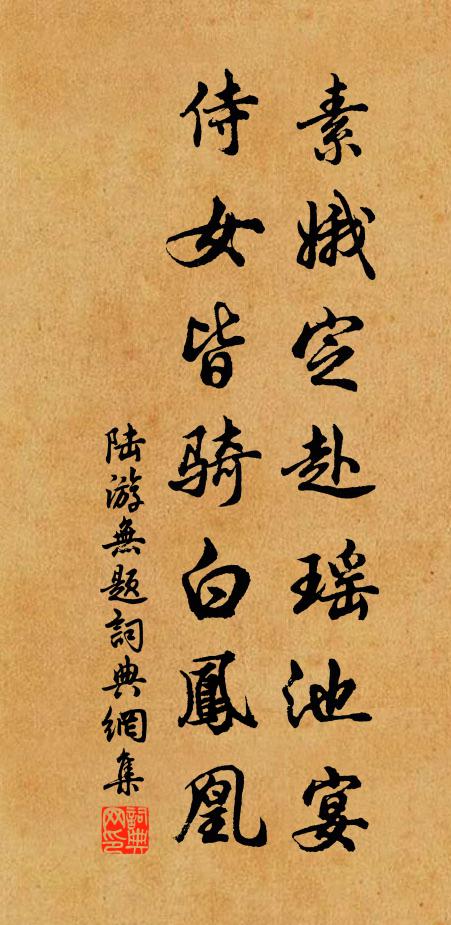 素娥定赴瑶池宴
侍女皆骑白鳳凰
陆游無题詞典網集
詞典网印